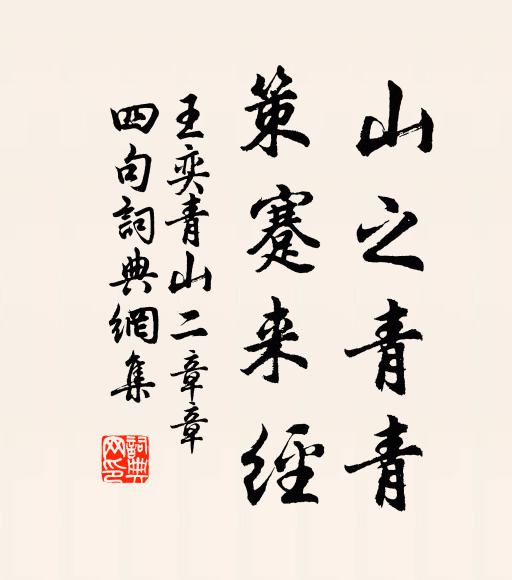 山之青青
策蹇来經
王奕青山二章章
四句詞典網集
詞典
网印